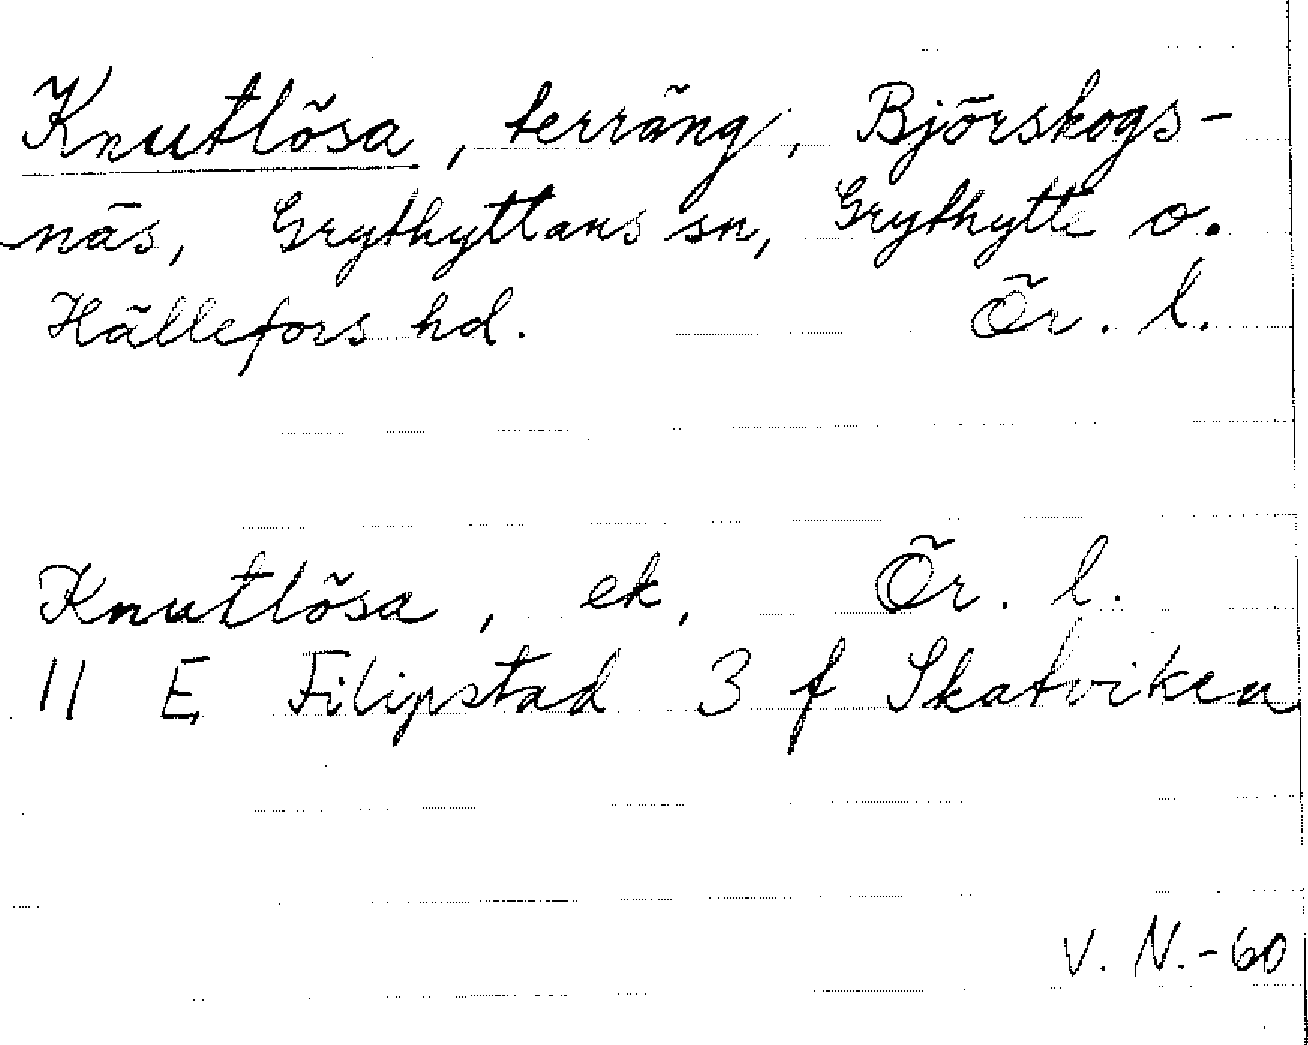 Knutlösa, terräng, Björskogs-
näs, Grythyttans sn, Grythytte o.
Hällefors hd. Ör. l.
Knutlösa, ek, Ör. l.
11 E Filipstad 3 f Skatviken
V. N.-60